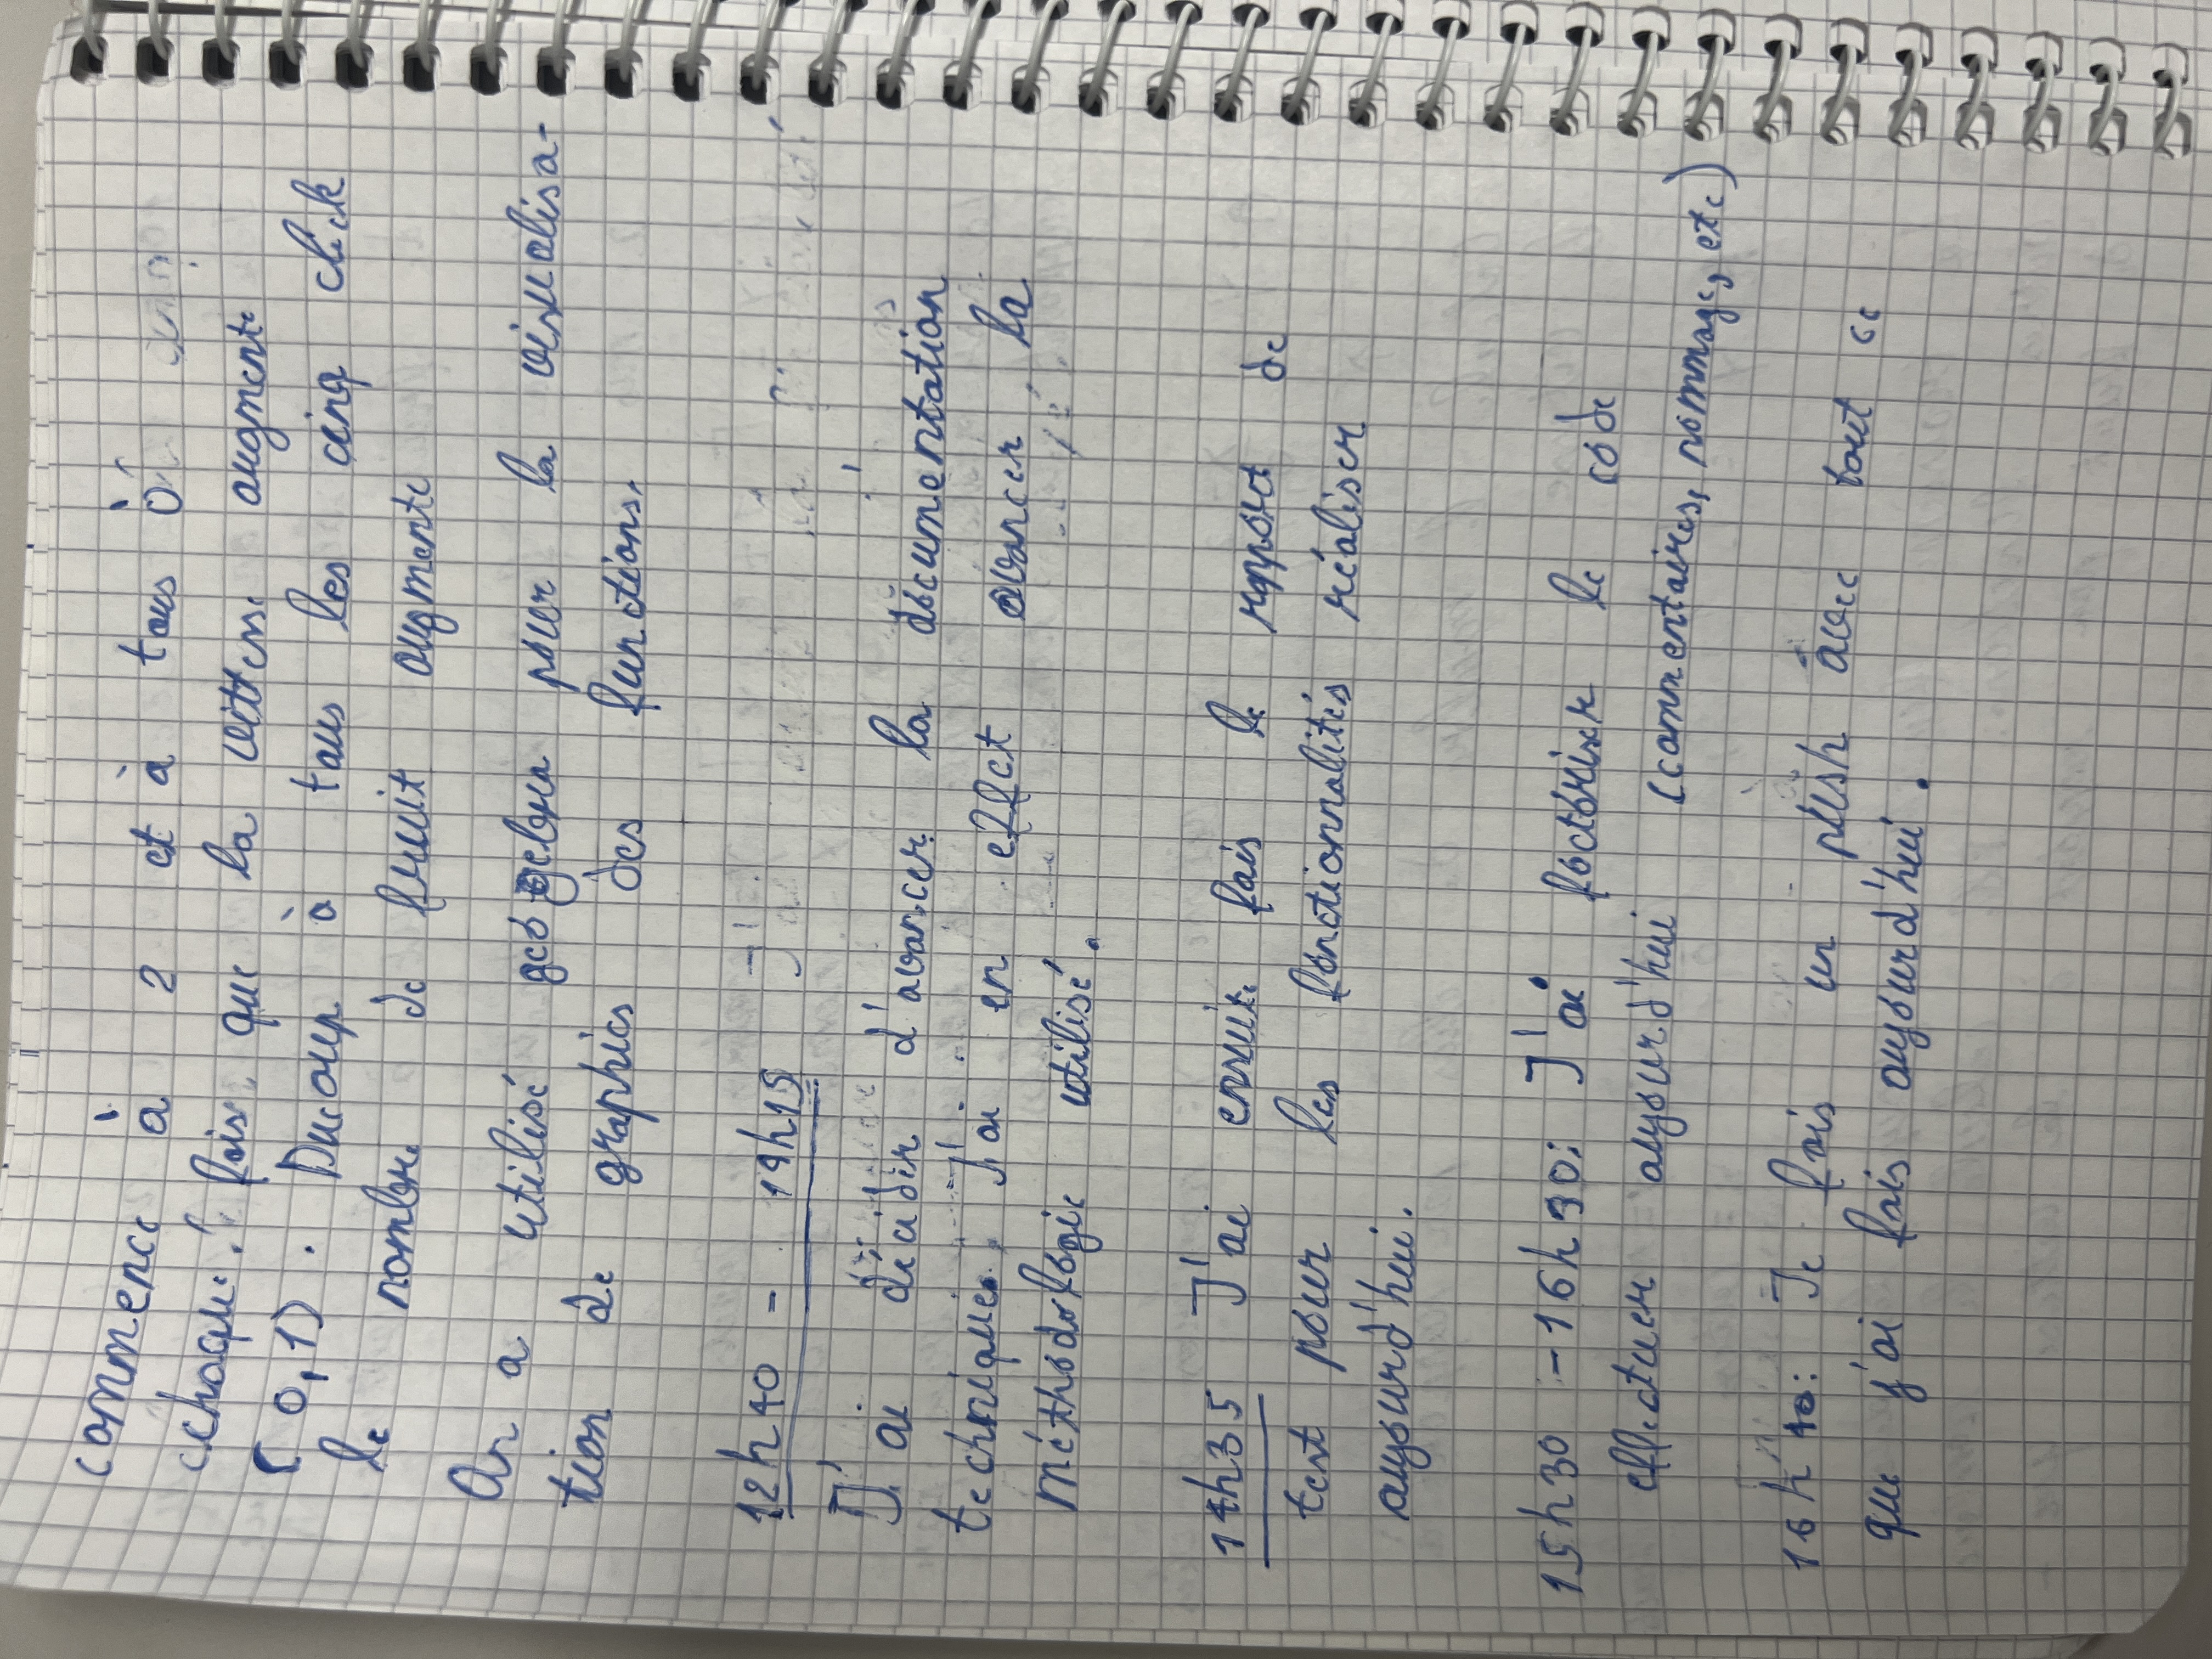 commence à 2 et à tous ò
chaque fois que la vittesse augmente
(0,1). Ducoup à tous les cinq click
le nombre de fruit augmente
On a utilisé geogebra pour la visualisa-
tion de graphics des functions.
12h40 - 14h15
J'ai décidir d'avancer la documentation
technique. J'ai en effet avancer la
méthodologie utilisé.
14h35 J'ai ensuite fais le rapport de
test pour les fonctionnalités réaliser
aujourd'hui.
15h30 - 16h30: J'ai factoriser le code
effectuer aujourd'hui (commentaires, nommage, etc)
16h40: Je fais un push avec tout ce
que j'ai fais aujourd'hui.